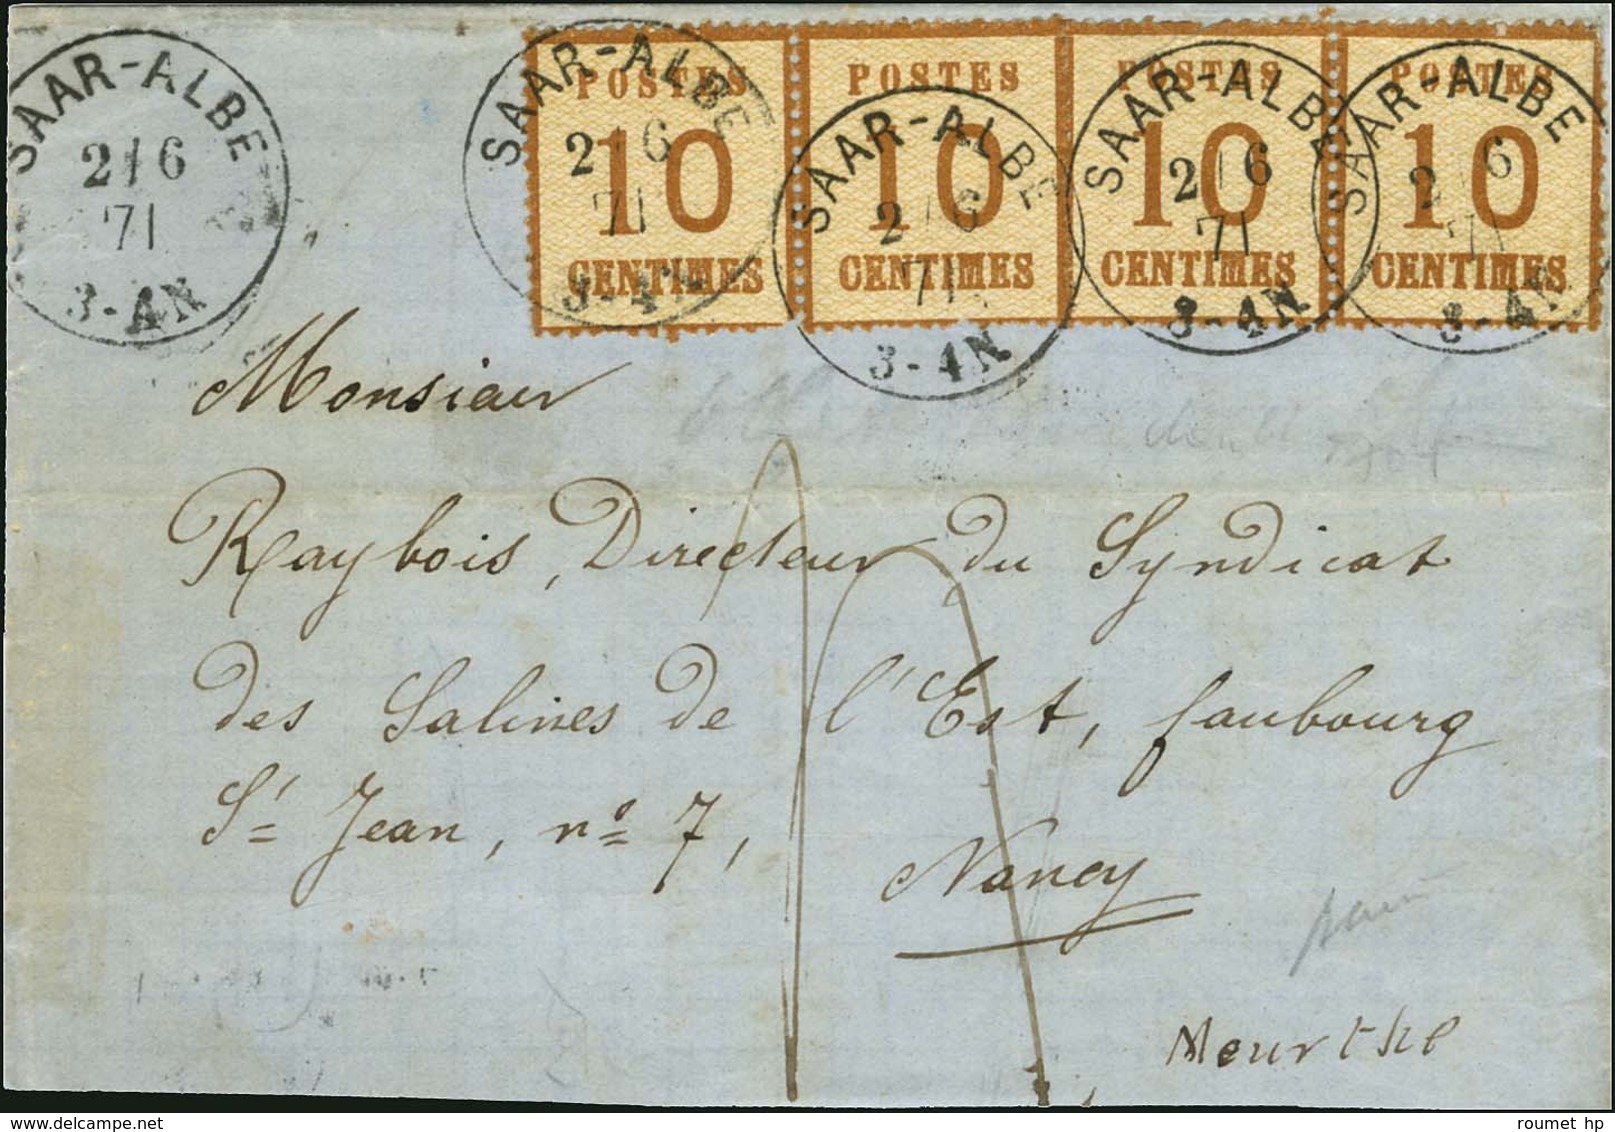 SAAR-ALBE
2/6
71
3-4N
SAAR-ALBE
2/6
71
3-4N
SAAR-ALBE
2/6
71
3-4N
SAAR-ALBE
2/6
71
3-4N
SAAR-ALBE
2/6
71
3-4N
POSTES
10
CENTIMES
POSTES
10
CENTIMES
POSTES
10
CENTIMES
POSTES
10
CENTIMES
Monsieur
Raybois, Directeur du Syndicat
des Salines de l'Est, faubourg
St Jean, no 7,
Nancy
Meurthe
roumet hp